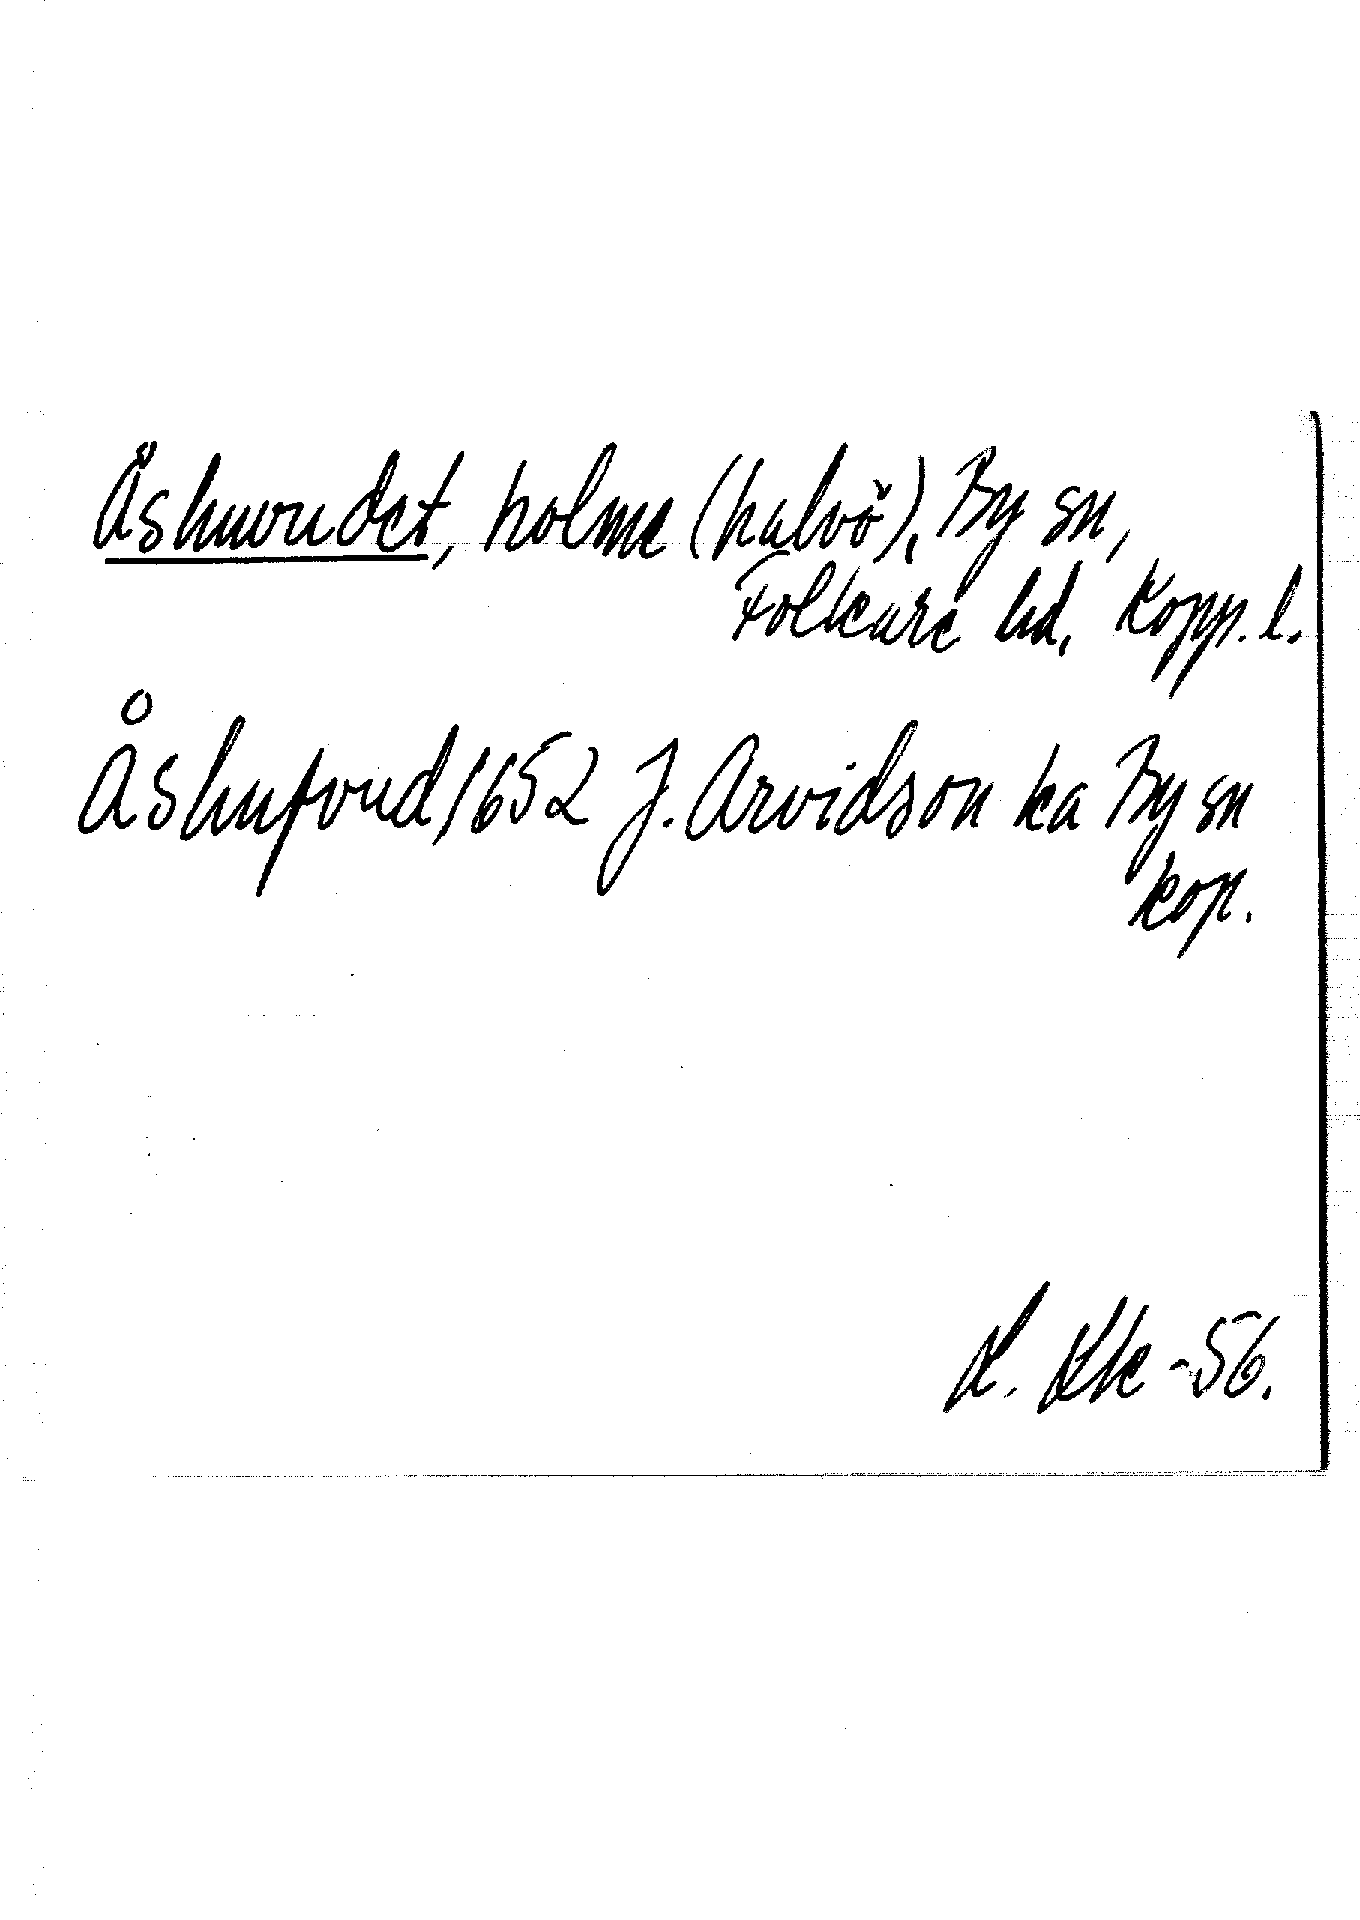 Åshuvudet, holme (halvö), By sn,
Folkare hd, Kopp. l.
Åshufvud 1652 J. Arvidson ka By sn
kop.
-56.